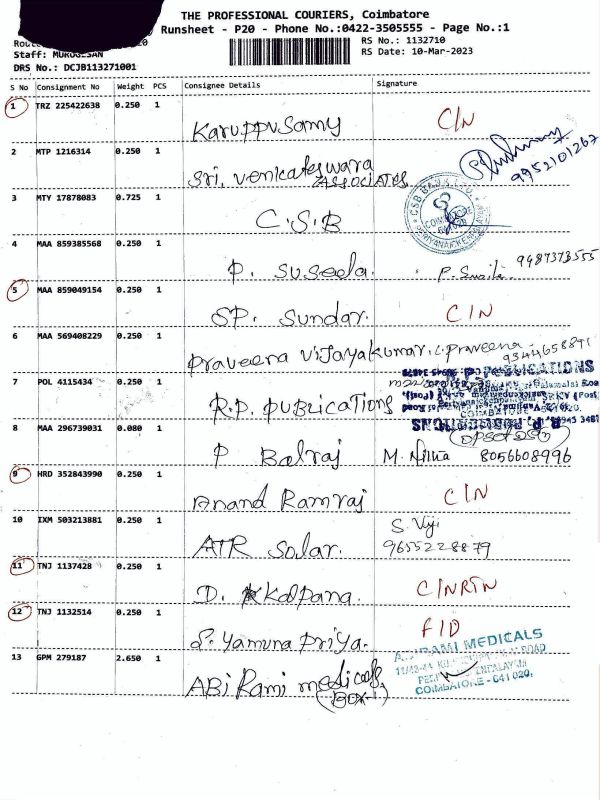 THE PROFESSIONAL COURIERS, Coimbatore
Runsheet - P20 - Phone No.:0422-3505555 - Page No.:1
RS No.: 1132710
Staff: MURUGESAN
RS Date: 10-Mar-2023
DRS No.: DCJB113271001
S No Consignment No Weight PCS Consignee Details Signature
1 TRZ 225422638 0.250 1 Karuppusamy C/N
2 MTP 1216314 0.250 1 Sri. Venkateswara
ASSOCIATES 9952101267
3 MTY 17878083 0.725 1 C.S.B CSB BANK LTD. COIMBATORE
4 MAA 859385568 0.250 1 P. Suseela. 9487373555
5 MAA 859049154 0.250 1 SP. Sundar. C/N
6 MAA 569408229 0.250 1 Praveena Vijayakumar. C. Praveena
9344658891
7 POL 4115434 0.250 1 R.P. PUBLICATIONS
8 MAA 296739031 0.080 1 P Balraj M. Nilua 8056608996
9 HRD 352843990 0.250 1 Anand Ramraj C/N
10 IXM 503213881 0.250 1 ATR Solar. S. Viji
9655228879
11 TNJ 1137428 0.250 1 D. Kalpana. C/NRTN
12 TNJ 1132514 0.250 1 S. Yamuna Priya. F/D
13 GPM 279187 2.650 1 ABi Rami medicals
(BOX-1)
MEDICALS
COIMBATORE - 641 020.